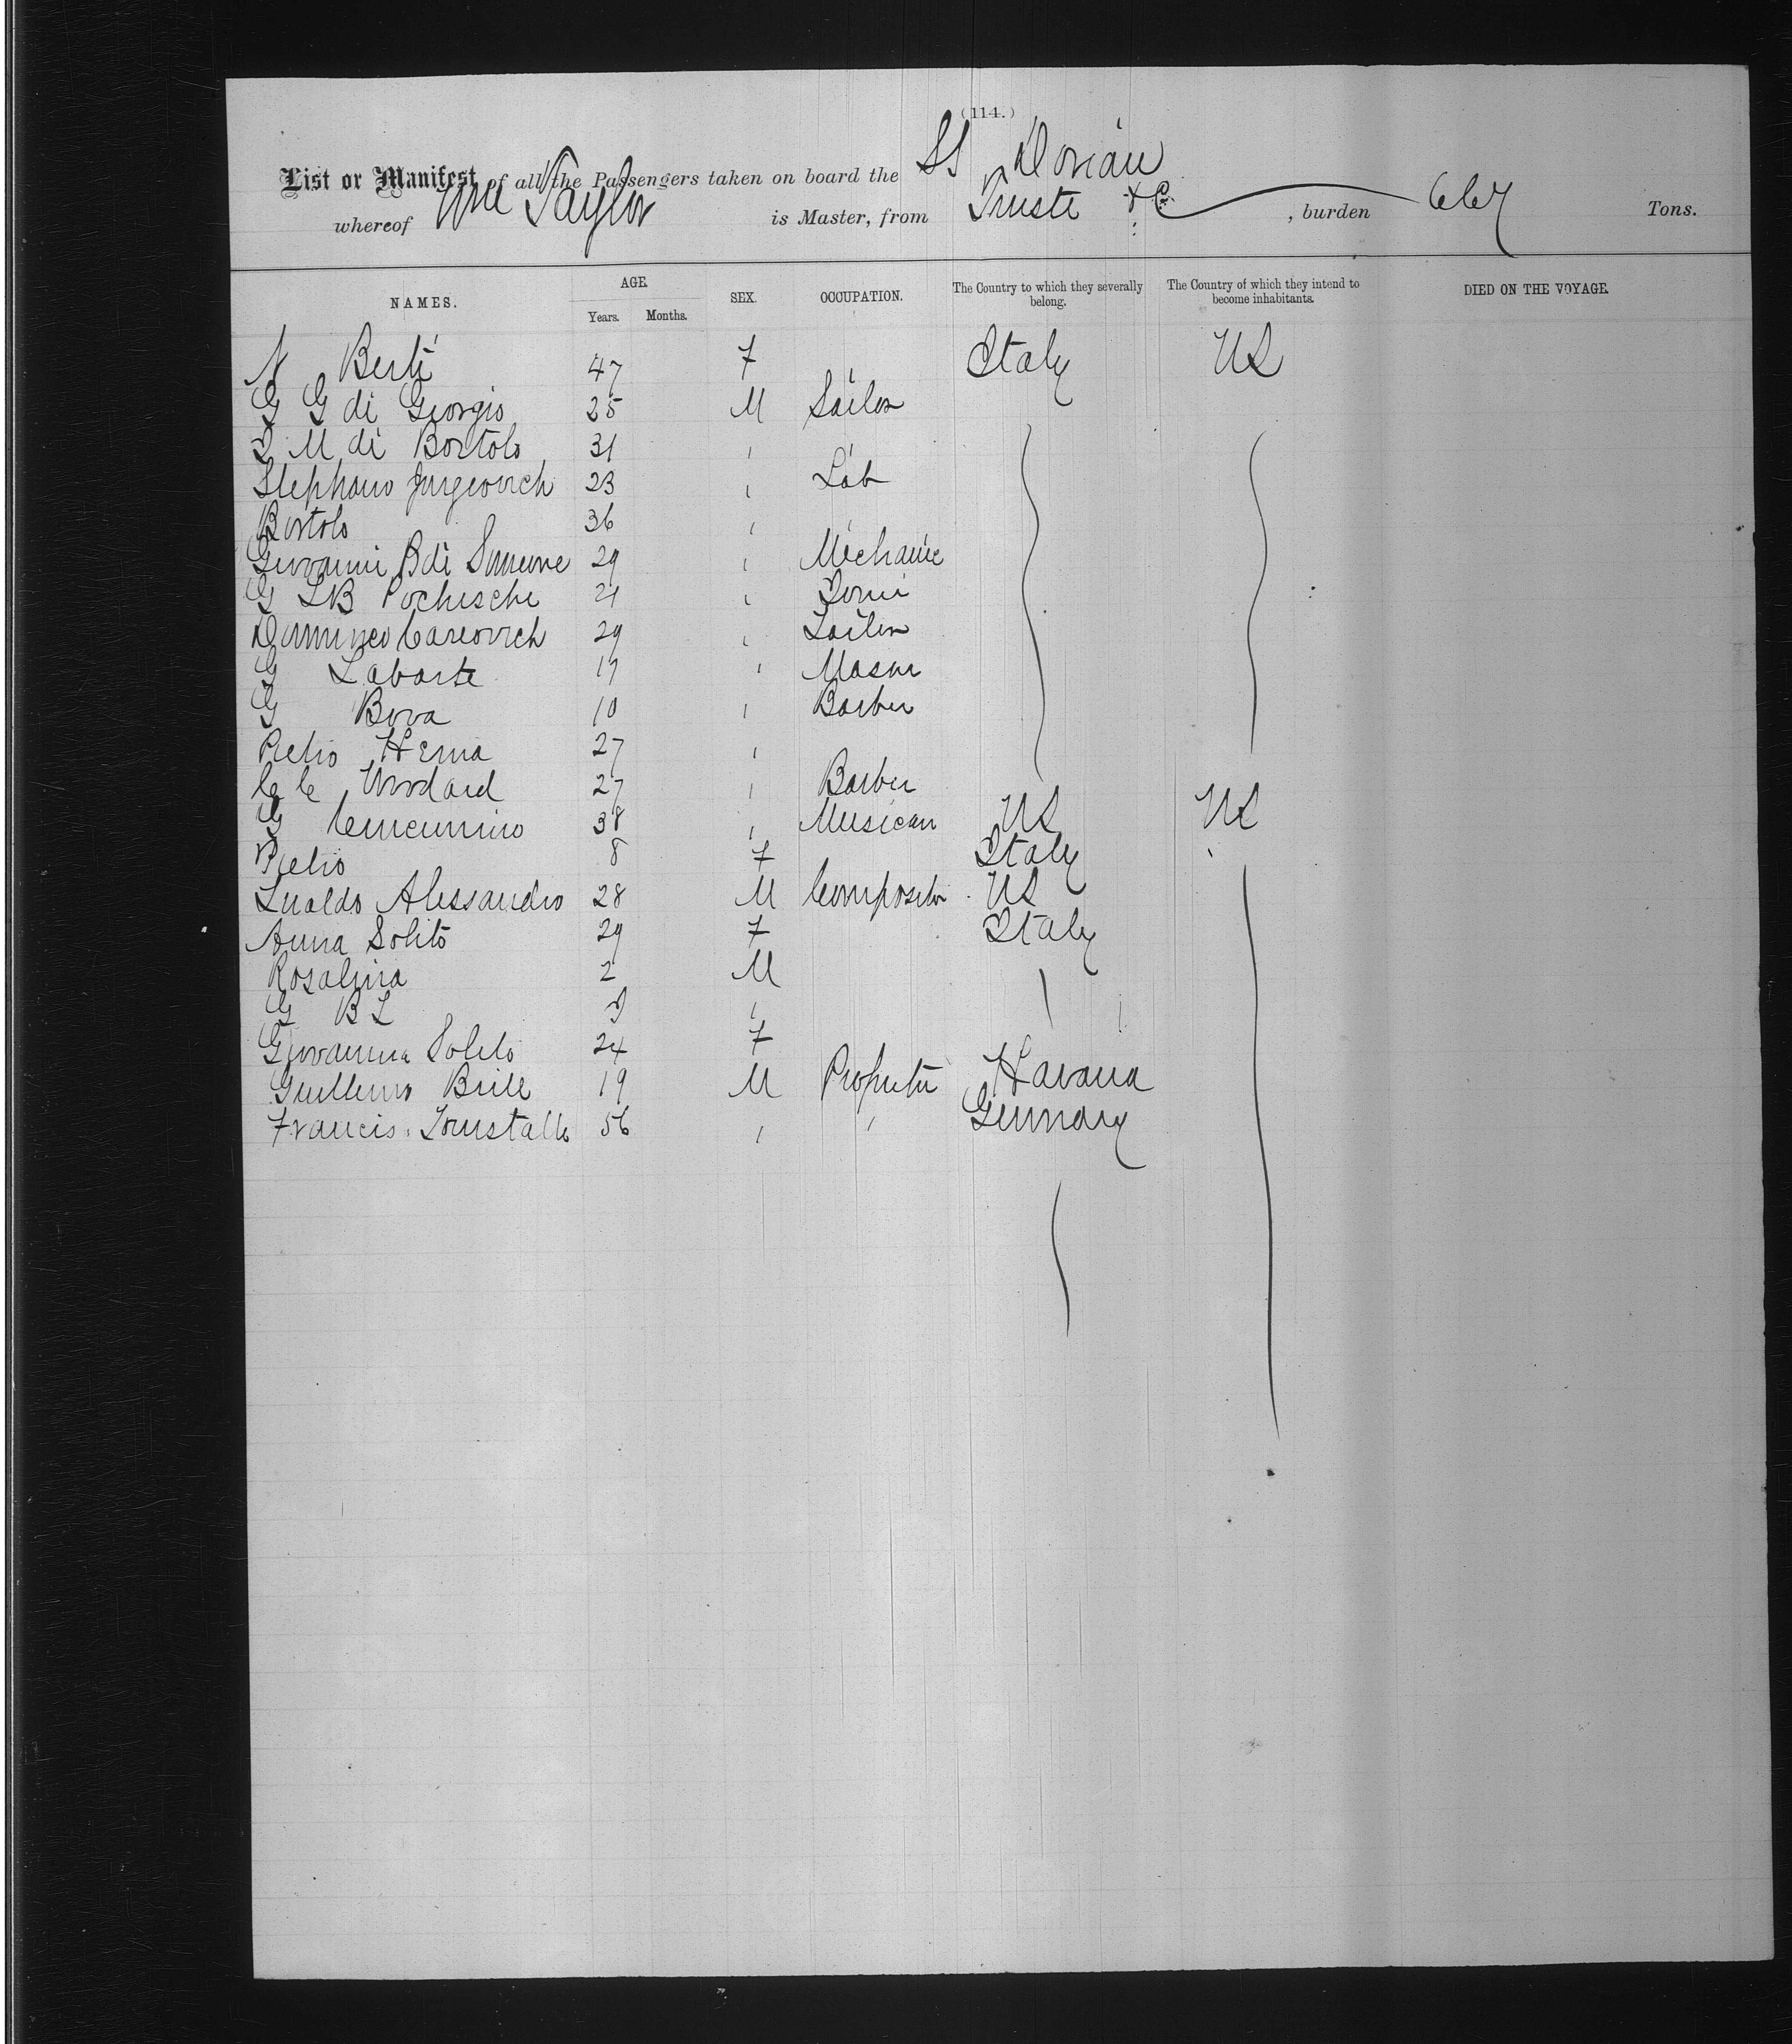 (114.)
List or Manifest of all the Passengers taken on board the SS Dorian
whereof Wm Taylor is Master, from Trieste &c , burden 667 Tons.
NAMES. AGE. SEX. OCCUPATION. The Country to which they severally belong. The Country of which they intend to become inhabitants. DIED ON THE VOYAGE.
Years. Months.
N Berti 47 F Italy US
G G di Giorgio 25 M Sailor
D M di Bortolo 31 "
Stephano Jurgeovich 23 " Lab
Bortolo 36 "
Giovanni B di Simeone 29 " Mechanic
G LB Pochesche 21 "
Dominico Careovich 29 " Sailor
G Labarte 17 " Mason
G Bova 10 " Barber
Pietro Hema 27 "
C C Woodard 27 " Barber
G 38 " Musican US US
Pietro 8 F Italy
Alessandro 28 M Compositor US
Anna Solito 29 F Italy
Rosalina 2 M
G B L 3 "
Giovanna Solito 24 F
Guillermo Brill 19 M Havana
Francis 56 " " Germany